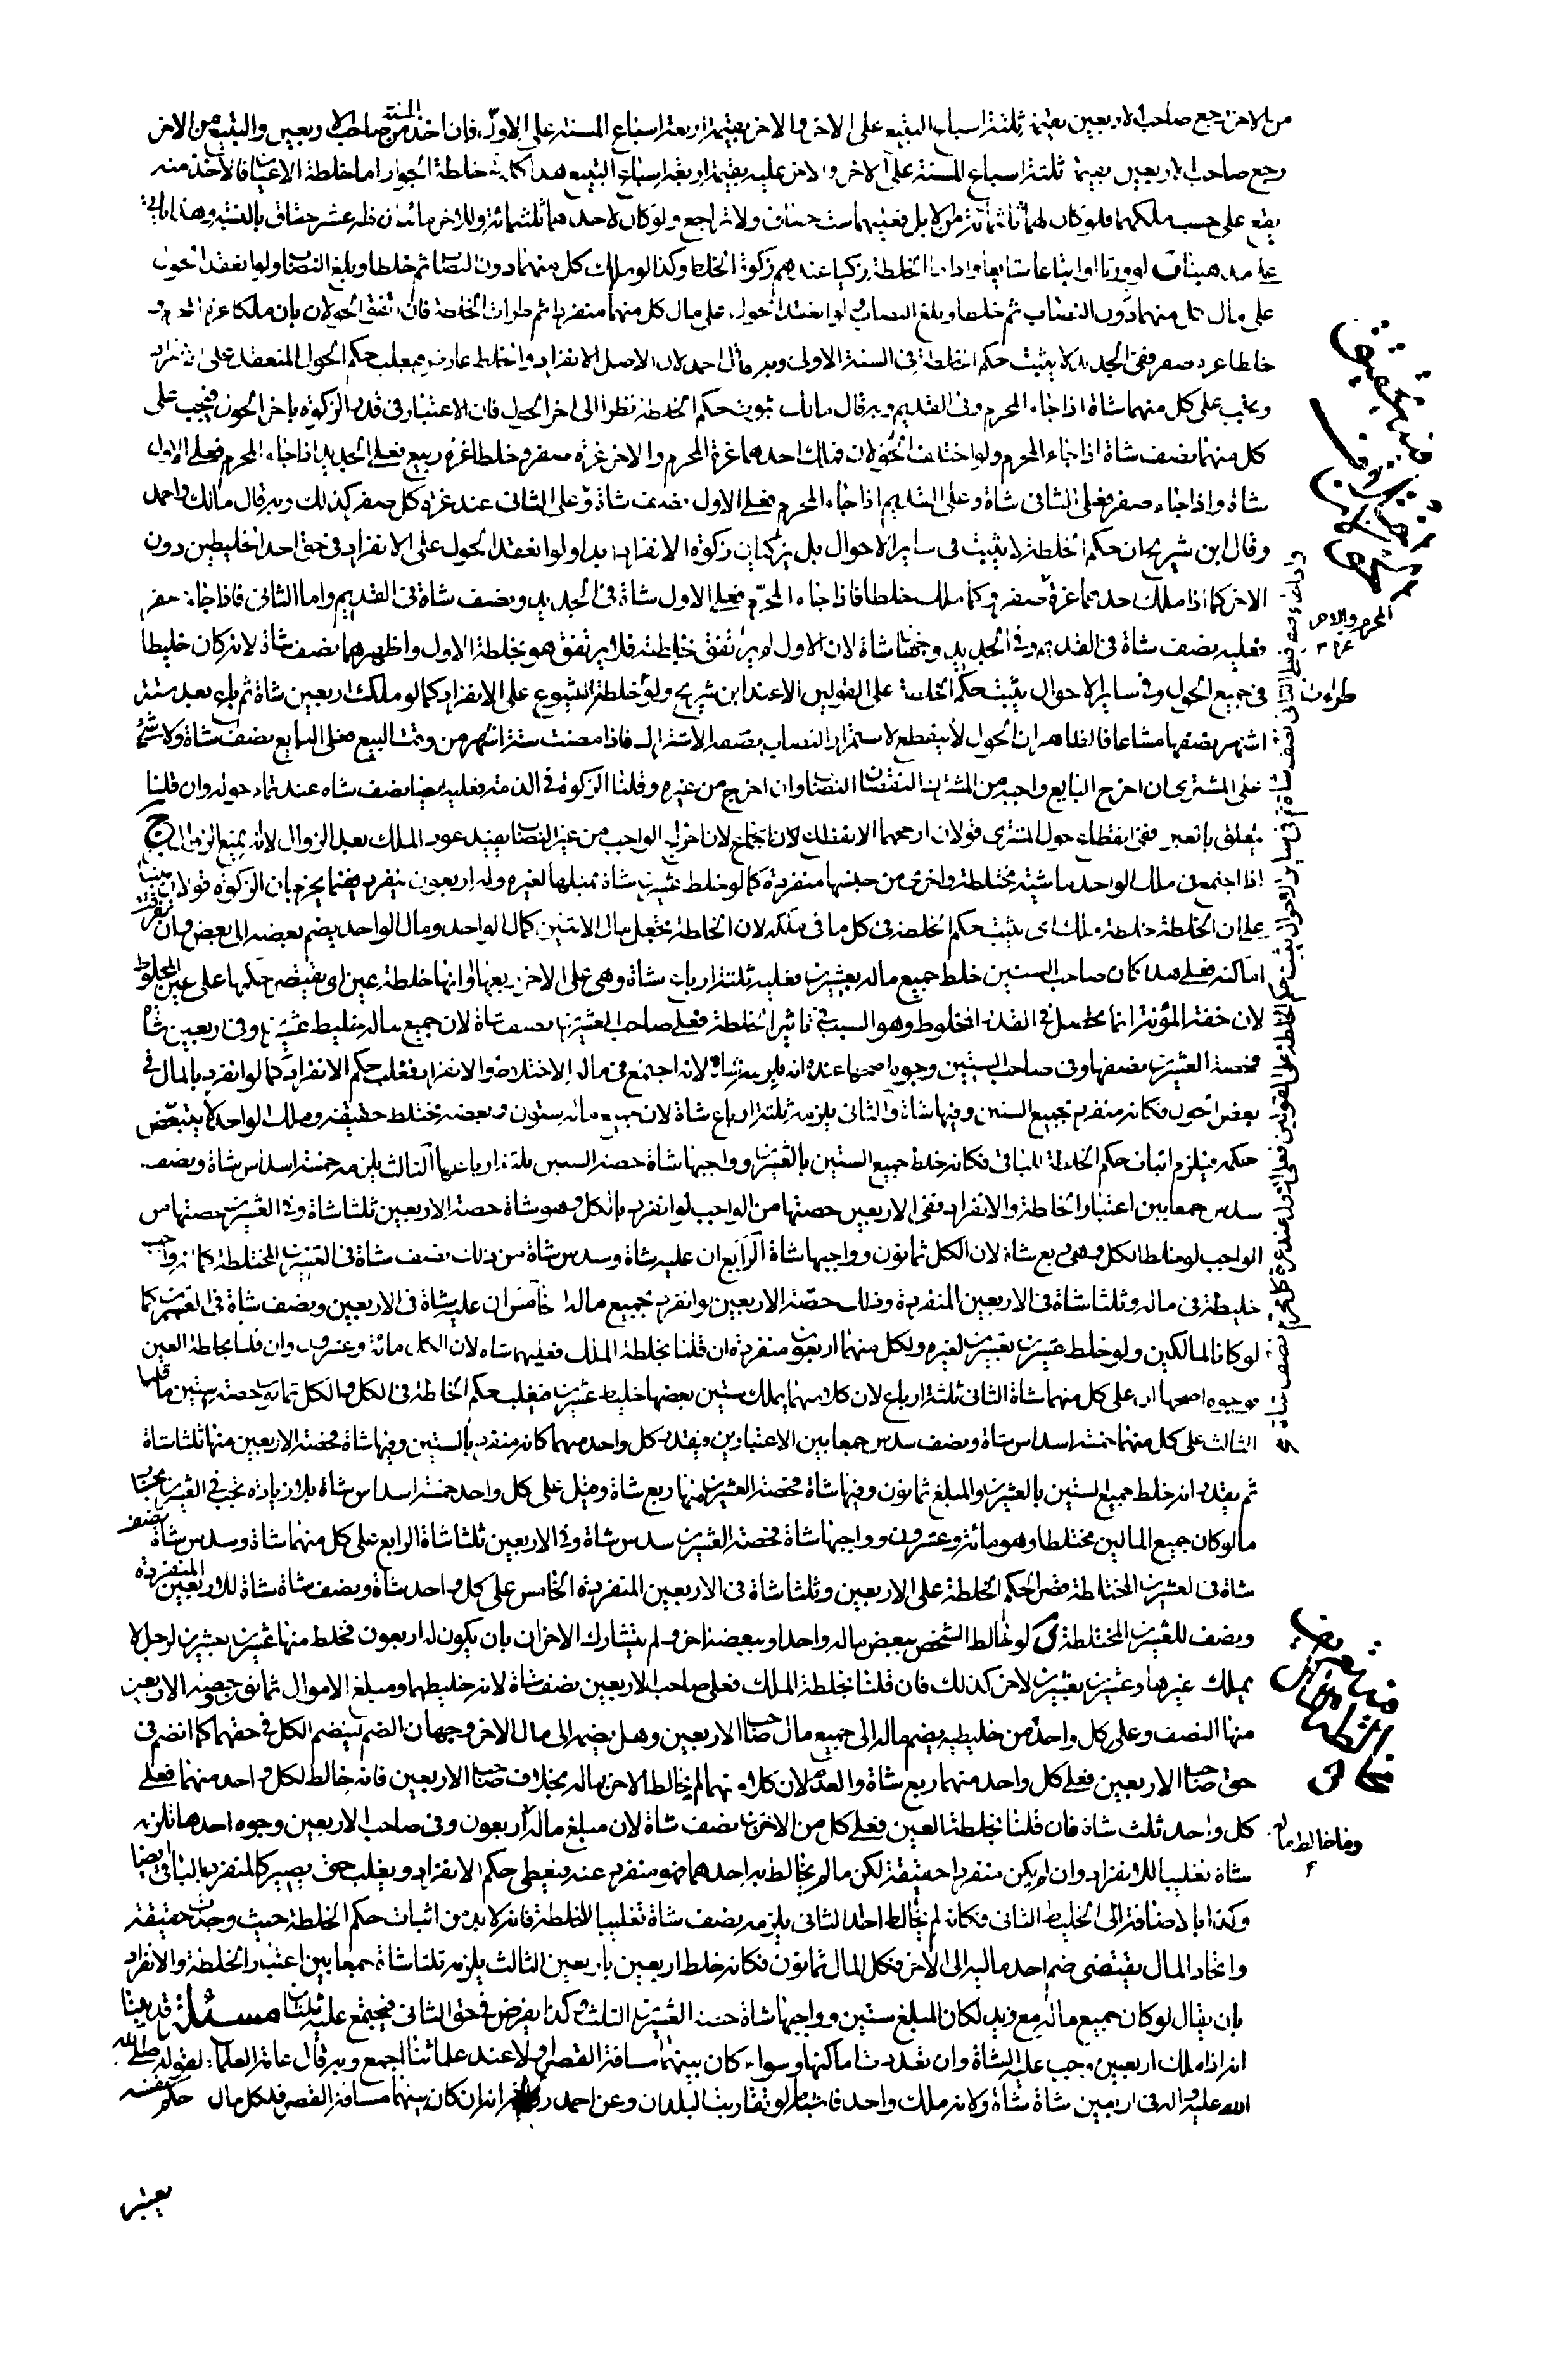 من الاخر رجع صاحب الاربعين بقيمة ثلثة اسباع التبيع على الاخر والاخر بقيمة اربعة اسباع المسنة على الاول، فان اخذ المسنة من صاحب الاربعين والتبيع من الاخر
رجع صاحب الاربعين بقيمة ثلثة اسباع المسنة على الاخر والاخر عليه بقيمة اربعة اسباع التبيع هذا كله في خلطة الجوار اما خلطة الاعيان فالاخذ منه
يقع على حسب ملكهما فلو كان لهما ثلثمائة من الابل فعليهما ست حقاق ولا تراجع ولو كان لاحدهما ثلثمائة وللاخر مائتان
لو ورثا او ابتاعا شايعا واداما الخلطة زكيا عندهم زكوة الخلطا وكذا لو ملك كل منهما دون النصاب ثم خلطا وبلغ النصاب ولو انعقد الحول
على مال كل منهما دون النصاب ثم خلطا وبلغ النصاب ولو انعقد الحول على مال كل منهما منفردا ثم طرات الخلطة فان اتفق الحولان بان ملكا غرة المحرم و
خلطا غرة صفر ففي الجديد لا يثبت حكم الخلطة في السنة الاولى وبه قال احمد لان الاصل الانفراد والخلط عارض فيغلب حكم الحول المنعقد على الانفراد
ويجب على كل منهما شاة اذا جاء المحرم وفي القديم وبه قال مالك ثبوت حكم الخلطة نظرا الى اخر الحول فان الاعتبار في قدر الزكوة باخر الحول فيجب على
كل منهما نصف شاة اذا جاء المحرم ولو اختلف الحولان فملك احدهما غرة المحرم والاخر غرة صفر وخلطا غرة ربيع فعلى الجديد اذا جاء المحرم فعلى الاول
شاة واذا جاء صفر فعلى الثاني شاة وعلى القديم اذا جاء المحرم فعلى الاول نصف شاة وعلى الثاني عند غرة كل صفر كذلك وبه قال مالك واحمد
وقال ابن شريح ان حكم الخلطة لا يثبت في ساير الاحوال بل يزكيان زكوة الانفراد ابدا ولو انعقد الحول على الانفراد في حق احد الخليطين دون
الاخر كما اذا ملك احدهما غرة صفر وكما ملك خلطا فاذا جاء المحرم فعلى الاول شاة في الجديد ونصف شاة في القديم واما الثاني فاذا جاء صفر
فعليه نصف شاة في القديم وفي الجديد وجهان شاة لان الاول لم يرتفق بخلطته فلا يرتفق هو بخلطة الاول واظهرهما نصف شاة لانه كان خليطا
في جميع الحول وفي ساير الاحوال يثبت حكم الخلطة على القولين الا عند ابن شريح ولو خلطة الشيوع على الانفراد كما لو ملك اربعين شاة ثم باع بعد ستة
اشهر نصفها مشاعا فالظاهر ان الحول لا ينقطع لاستمرار النصاب بصفة الاشتراك فاذا مضت ستة اشهر من وقت البيع فعلى البايع نصف شاة ولا شئ
على المشتري ان اخرج البايع واجبه من المشترك لنقصان النصاب وان اخرج من غيره وقلنا الزكوة في الذمة فعليه ايضا نصف شاة عند تمام حوله وان قلنا
يتعلق بالعين ففي انقطاع حول المشتري قولان ارجحهما الانقطاع لان اخراج الواجب من غير النصاب يفيد عود الملك بعد الزوال لا انه يمنع الزوال ج
اذا اجتمع في ملك الواحد ماشية مختلطة واخرى من جنسها منفردة كما لو خلط عشرين شاة بمثلها لغيره وله اربعون ينفرد بها بان الزكوة قولان مبنيان
على ان الخلطة خلطة ملك اي يثبت حكم الخلطة في كل ما في ملكه لان الخلطة تجعل مال الاثنين كمال الواحد ومال الواحد يضم بعضه الى بعض وان تفرقت
اماكنه فعلى هذا كان صاحب الستين خلط جميع ماله بعشرين فعليه ثلثة ارباع شاة وهي على الاخر ربعها او انها خلطة عين اي يقتصر حكمها على عين المخلوط
لان خفة المؤنة انما تحصل في القدر المخلوط وهو السبب في تاثير الخلطة فعلى صاحب العشرين نصف شاة لان جميع ماله خليط عشرين وفي اربعين شاة
فحصة العشرين نصفها وفي صاحب الستين وجوه اصحها عنده انه يلزمه شاة لانه اجتمع في ماله الاختلاط والانفراد فغلب حكم الانفراد كما لو انفرد بالمال في
بعض الحول فكانه منفرد بجميع الستين وفيها شاة والثاني يلزمه ثلثة ارباع شاة لان جميع ماله ستون وبعضه مختلط حقيقة وملك الواحد لا يتبعض
حكمه فيلزم اثبات حكم الخلطة للباقي فكانه خلط جميع الستين بالعشرين وواجبها شاة حصة الستين ثلثة ارباعها الثالث يلزمه خمسة اسداس شاة ونصف
سدس جمعا بين اعتبار الخلطة والانفراد ففي الاربعين حصتها من الواجب لو انفرد بالكل وهو شاة حصة الاربعين ثلثا شاة وفي العشرين حصتها من
الواجب لو خلط الكل وهي ربع شاة لان الكل ثمانون وواجبها شاة الرابع ان عليه شاة وسدس شاة من ذلك نصف شاة في العشرين المختلطة كما انه واجب
خليطه في ماله وثلثا شاة في الاربعين المنفردة وذلك حصة الاربعين لو انفرد بجميع ماله الخامس ان عليه شاة في الاربعين ونصف شاة في العشرين كما
لو كانا لمالكين ولو خلط عشرين بعشرين لغيره ولكل منهما اربعون منفردة ان قلنا بخلطة الملك فعليهما شاة لان الكل مائة وعشرون وان قلنا بخلطة العين
فوجوه اصحها ان على كل منهما شاة الثاني ثلثة ارباع لان كلا منهما يملك ستين بعضها خليط عشرين فيغلب حكم الخلطة في الكل والكل ثمانون حصة ستين ما قلنا
الثالث على كل منهما خمسة اسداس شاة ونصف سدس جمعا بين الاعتبارين ويقدر كل واحد منهما كانه منفرد بالستين وفيها شاة فحصة الاربعين منها ثلثا شاة
ثم يقدر انه خلط جميع الستين بالعشرين والمبلغ ثمانون وفيها شاة فحصة العشرين منها ربع شاة وقيل على كل واحد خمسة اسداس شاة بلا زيادة تجب في العشرين بحساب
ما لو كان جميع المالين مختلطا وهو مائة وعشرون وواجبها شاة فحصة العشرين سدس شاة وفي الاربعين ثلثا شاة الرابع على كل منهما شاة وسدس شاة نصف
شاة في العشرين المختلطة قصرا لحكم الخلطة على الاربعين وثلثا شاة في الاربعين المنفردة الخامس على كل واحد شاة ونصف شاة شاة للاربعين المنفردة
ونصف للعشرين المختلطة ى لو خالط الشخص ببعض ماله واحدا وببعضه اخر ولم يتشارك الاخران بان يكون له اربعون فخلط منها عشرين بعشرين لرجل لا
يملك غيرها وعشرين بعشرين لاخر كذلك فان قلنا بخلطة الملك فعلى صاحب الاربعين نصف شاة لانه خليطهما ومبلغ الاموال ثمانون وحصة الاربعين
منها النصف وعلى كل واحد من خليطيه يضم ماله الى جميع مال صاحب الاربعين وهل يضم الى مال الاخر وجهان الضم لينضم الكل في حقهما كما انضم في
حق صاحب الاربعين فعلى كل واحد منهما ربع شاة والعدم لان كلا منهما لم يخالط الاخر بماله بخلاف صاحب الاربعين فانه خالط لكل واحد منهما فعلى
كل واحد ثلث شاة فان قلنا بخلطة العين فعلى كل من الاخرين نصف شاة لان مبلغ ماله اربعون وفي صاحب الاربعين وجوه احدها تلزمه
شاة تغليبا للانفراد وان لم يكن منفردا حقيقة لكن ما لم يخالط به احدهما فهو منفرد عنه فيعطى حكم الانفراد ويغلب حتى يصير كالمنفرد بالباقي ايضا
وكذا بالاضافة الى الخليط الثاني فكانه لم يخالط احدا الثاني يلزمه نصف شاة تغليبا للخلطة فانه لا بد من اثبات حكم الخلطة حيث وجدت حقيقة
واتحاد المال يقتضي ضم احد ماليه الى الاخر فكل المال ثمانون فكانه خلط اربعين باربعين الثالث يلزمه ثلثا شاة جمعا بين اعتبار الخلطة والانفراد
بان يقال لو كان جميع ماله مع زيد لكان المبلغ ستين وواجبها شاة حصة العشرين الثلث وكذا يفرض في حق الثاني فيجتمع عليه ثلثان مسئلة قد بينا
انه اذا ملك اربعين وجب عليه الشاة وان تعددت اماكنها وسواء كان بينهما مسافة القصر او لا عند علمائنا اجمع وبه قال عامة العلماء لقوله صلى الله
الله عليه واله في اربعين شاة شاة ولانه ملك واحد فاشبه لو تقاربت البلدان وعن احمد رواية انه ان كان بينهما مسافة القصر فلكل مال حكم نفسه
المحرم والاخر
غرة
طرات
وما خالط بماله
يعتبر